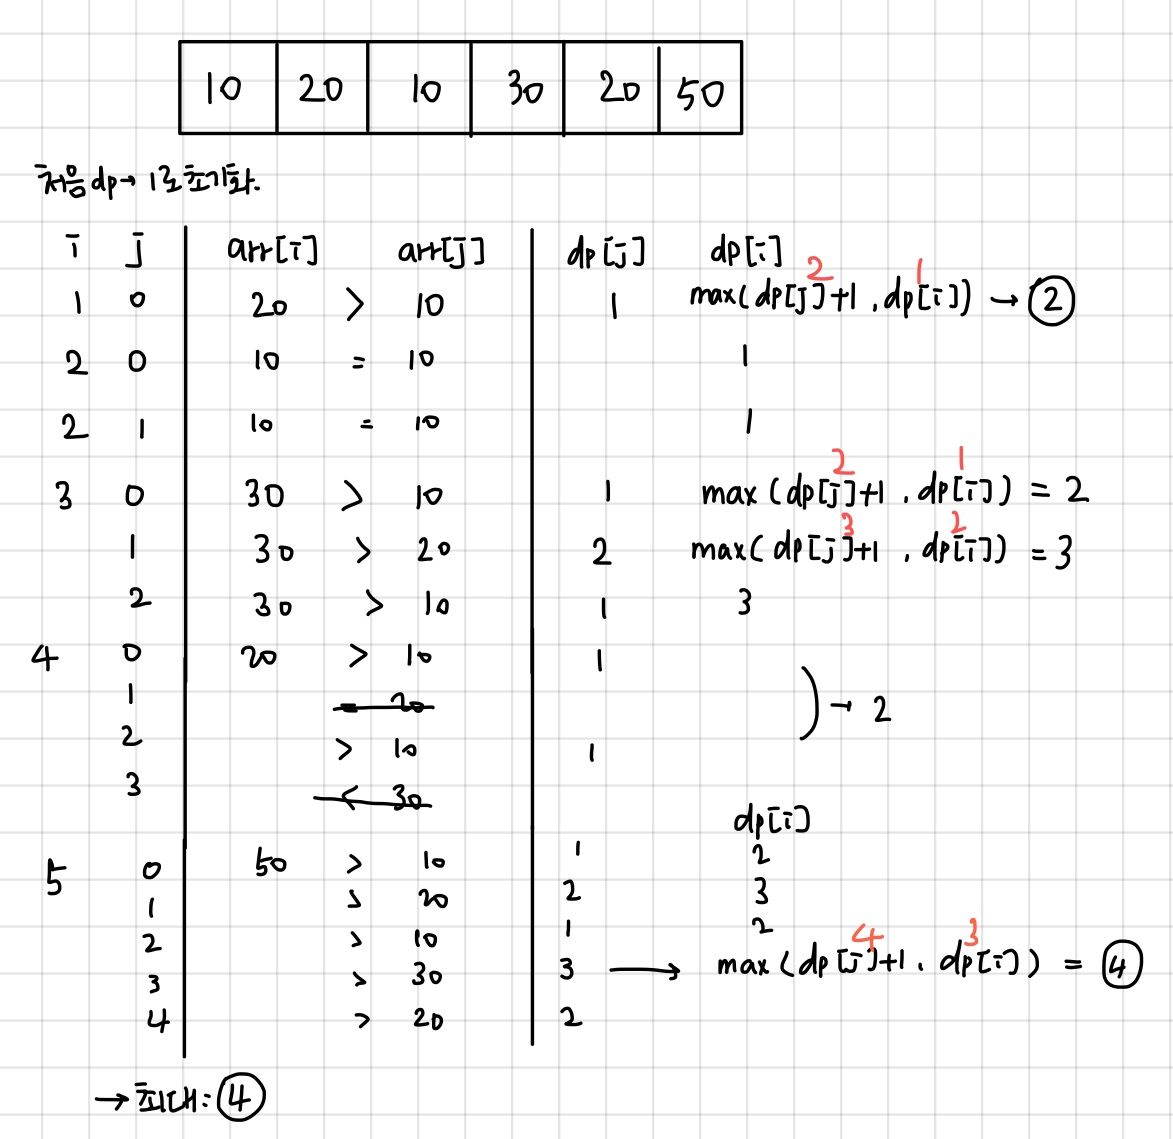 10 20 10 30 20 50
처음 dp → 1로 초기화.
i j arr[i] arr[j] dp[j] dp[i]
2 1
1 0 20 > 10 1 max(dp[j]+1 , dp[i]) → 2
2 0 10 = 10 1
2 1 10 = 10 1
2 1
3 0 30 > 10 1 max(dp[j]+1 , dp[i]) = 2
3 2
1 30 > 20 2 max(dp[j]+1 , dp[i]) = 3
2 30 > 10 1 3
4 0 20 > 10 1
1 = 20
) → 2
2 > 10 1
3 < 30
dp[i]
5 0 50 > 10 1 2
1 > 20 2 3
2 > 10 1 2
4 3
3 > 30 3 → max(dp[j]+1 , dp[i]) = 4
4 > 20 2
→ 최대 : 4